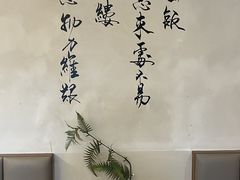 飯
思來處不易
縷
念物力維艱